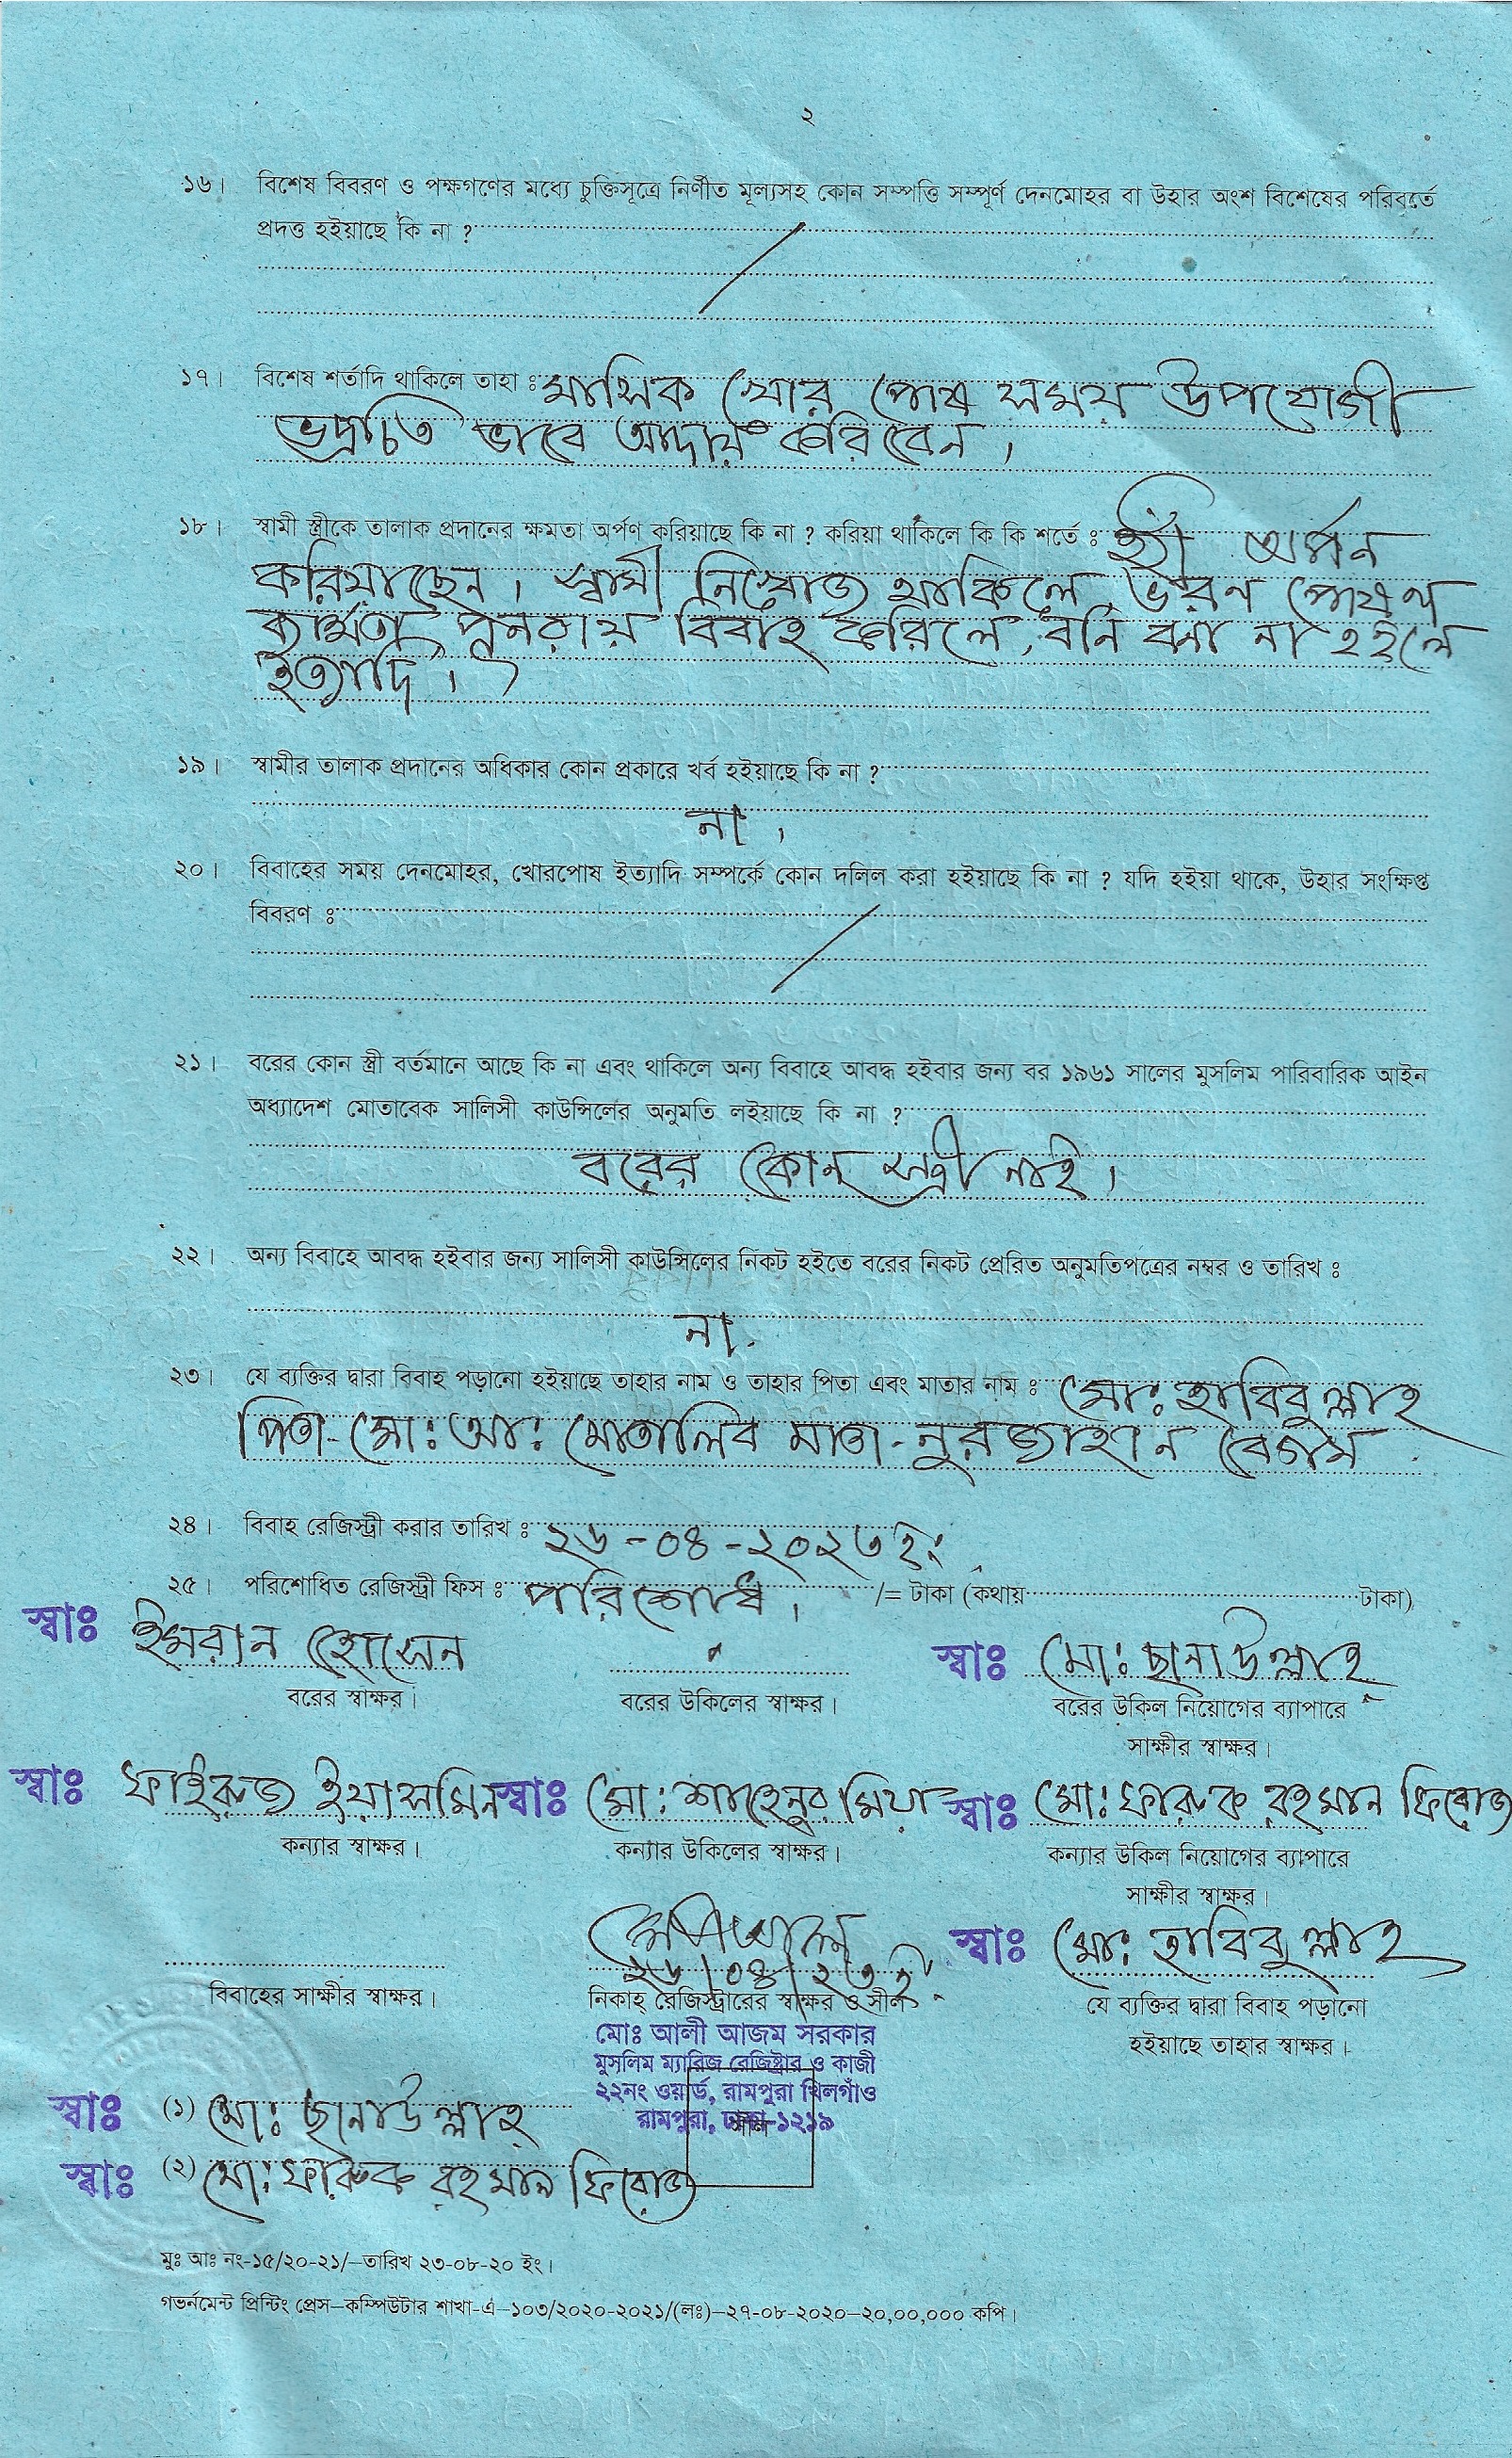 ২
১৬। বিশেষ বিবরণ ও পক্ষগণের মধ্যে চুক্তিসূত্রে নির্ণীত মূল্যসহ কোন সম্পত্তি সম্পূর্ণ দেনমোহর বা উহার অংশ বিশেষের পরিবর্তে
প্রদত্ত হইয়াছে কি না ?
১৭। বিশেষ শর্তাদি থাকিলে তাহা ঃ মাসিক খোর পোষ সময় উপযোগী
ভদ্রচিত ভাবে আদায় করিবেন।
১৮। স্বামী স্ত্রীকে তালাক প্রদানের ক্ষমতা অর্পণ করিয়াছে কি না ? করিয়া থাকিলে কি কি শর্তে ঃ হাঁ অর্পন
করিয়াছেন। স্বামী নিখোজ থাকিলে, ভরন পোষণ
পুনরায় বিবাহ করিলে, বনি বনা না হইলে
ইত্যাদি।
১৯। স্বামীর তালাক প্রদানের অধিকার কোন প্রকারে খর্ব হইয়াছে কি না ?
না।
২০। বিবাহের সময় দেনমোহর, খোরপোষ ইত্যাদি সম্পর্কে কোন দলিল করা হইয়াছে কি না ? যদি হইয়া থাকে, উহার সংক্ষিপ্ত
বিবরণ ঃ
২১। বরের কোন স্ত্রী বর্তমানে আছে কি না এবং থাকিলে অন্য বিবাহে আবদ্ধ হইবার জন্য বর ১৯৬১ সালের মুসলিম পারিবারিক আইন
অধ্যাদেশ মোতাবেক সালিসী কাউন্সিলের অনুমতি লইয়াছে কি না ?
বরের কোন স্ত্রী নাই।
২২। অন্য বিবাহে আবদ্ধ হইবার জন্য সালিসী কাউন্সিলের নিকট হইতে বরের নিকট প্রেরিত অনুমতিপত্রের নম্বর ও তারিখ ঃ
না.
২৩। যে ব্যক্তির দ্বারা বিবাহ পড়ানো হইয়াছে তাহার নাম ও তাহার পিতা এবং মাতার নাম ঃ মোঃ হাবিবুল্লাহ
পিতা-মোঃ আঃ মোতালিব মাতা-নুরজাহান বেগম
২৪। বিবাহ রেজিস্ট্রী করার তারিখ ঃ ২৬-০৪-২০২৩ ইং
২৫। পরিশোধিত রেজিস্ট্রী ফিস ঃ পরিশোধ। /= টাকা (কথায় টাকা)
স্বাঃ ইমরান হোসেন স্বাঃ মোঃ ছানাউল্লাহ
বরের স্বাক্ষর। বরের উকিলের স্বাক্ষর। বরের উকিল নিয়োগের ব্যাপারে
সাক্ষীর স্বাক্ষর।
স্বাঃ ফাইরুজ ইয়াসমিন স্বাঃ মোঃ শাহেনুর মিয়া স্বাঃ মোঃ ফারুক রহমান ফিরোজ
কন্যার স্বাক্ষর। কন্যার উকিলের স্বাক্ষর। কন্যার উকিল নিয়োগের ব্যাপারে
সাক্ষীর স্বাক্ষর।
স্বাঃ মোঃ হাবিবুল্লাহ
২৬/০৪/২৩ ইং
বিবাহের সাক্ষীর স্বাক্ষর। নিকাহ্ রেজিস্ট্রারের স্বাক্ষর ও সীল যে ব্যক্তির দ্বারা বিবাহ পড়ানো
হইয়াছে তাহার স্বাক্ষর।
মোঃ আলী আজম সরকার
মুসলিম ম্যারিজ রেজিষ্ট্রার ও কাজী
২২নং ওয়ার্ড, রামপুরা খিলগাঁও
রামপুরা, ঢাকা-১২১৯
স্বাঃ (১) মোঃ ছানাউল্লাহ
স্বাঃ (২) মোঃ ফারুক রহমান ফিরোজ
মুঃ আঃ নং-১৫/২০-২১/–তারিখ ২৩-০৮-২০ ইং।
গভর্নমেন্ট প্রিন্টিং প্রেস–কম্পিউটার শাখা-এ–১০৩/২০২০-২০২১/(লঃ)–২৭-০৮-২০২০–২০,০০,০০০ কপি।